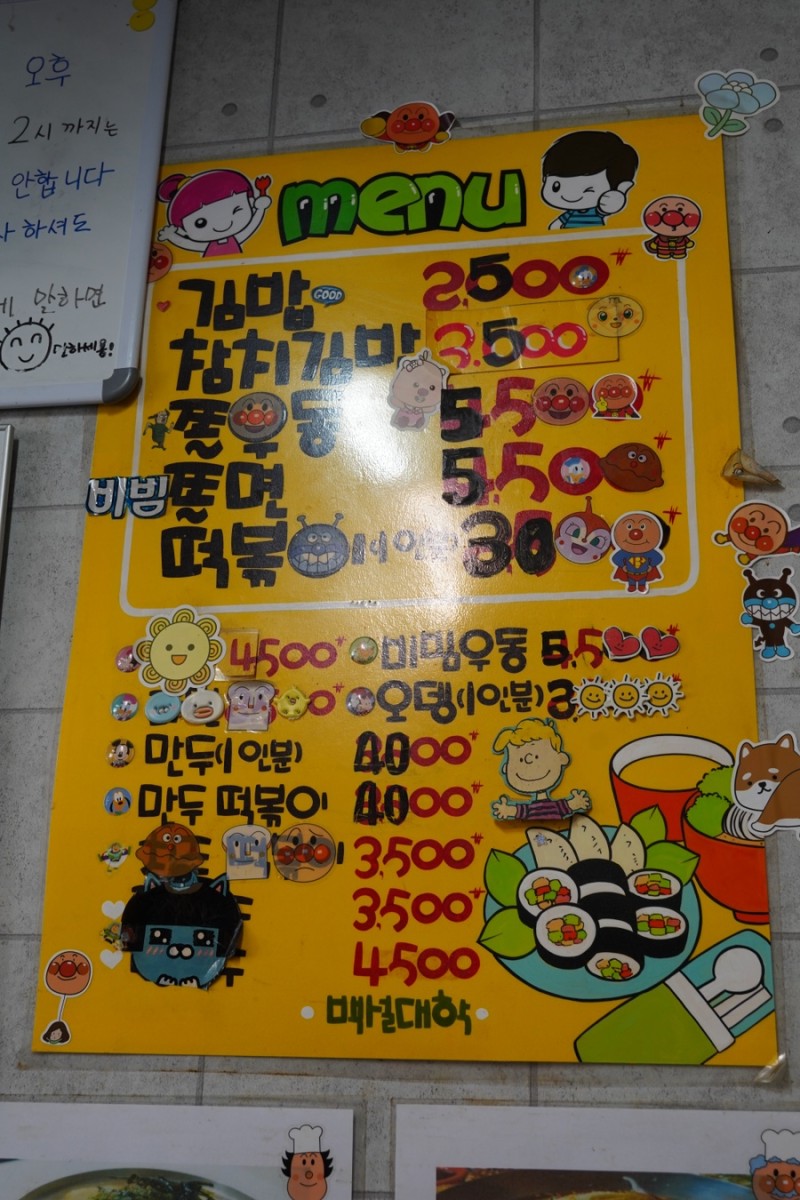 오후
2시 까지는
안합니다
하셔도
말하면
말하세용!
menu
김밥 GOOD 2,500₩
참치김밥 3,500
쫄우동 5,5 ₩
비빔쫄면 5,50 ₩
떡볶 (1인분) 30 ₩
4500₩
비빔우동 5,5 ₩
오뎅(1인분) 3,
만두(1인분) 4000₩
만두 떡볶이 4000₩
떡 이 3,500₩
3,500₩
4500
백설대학